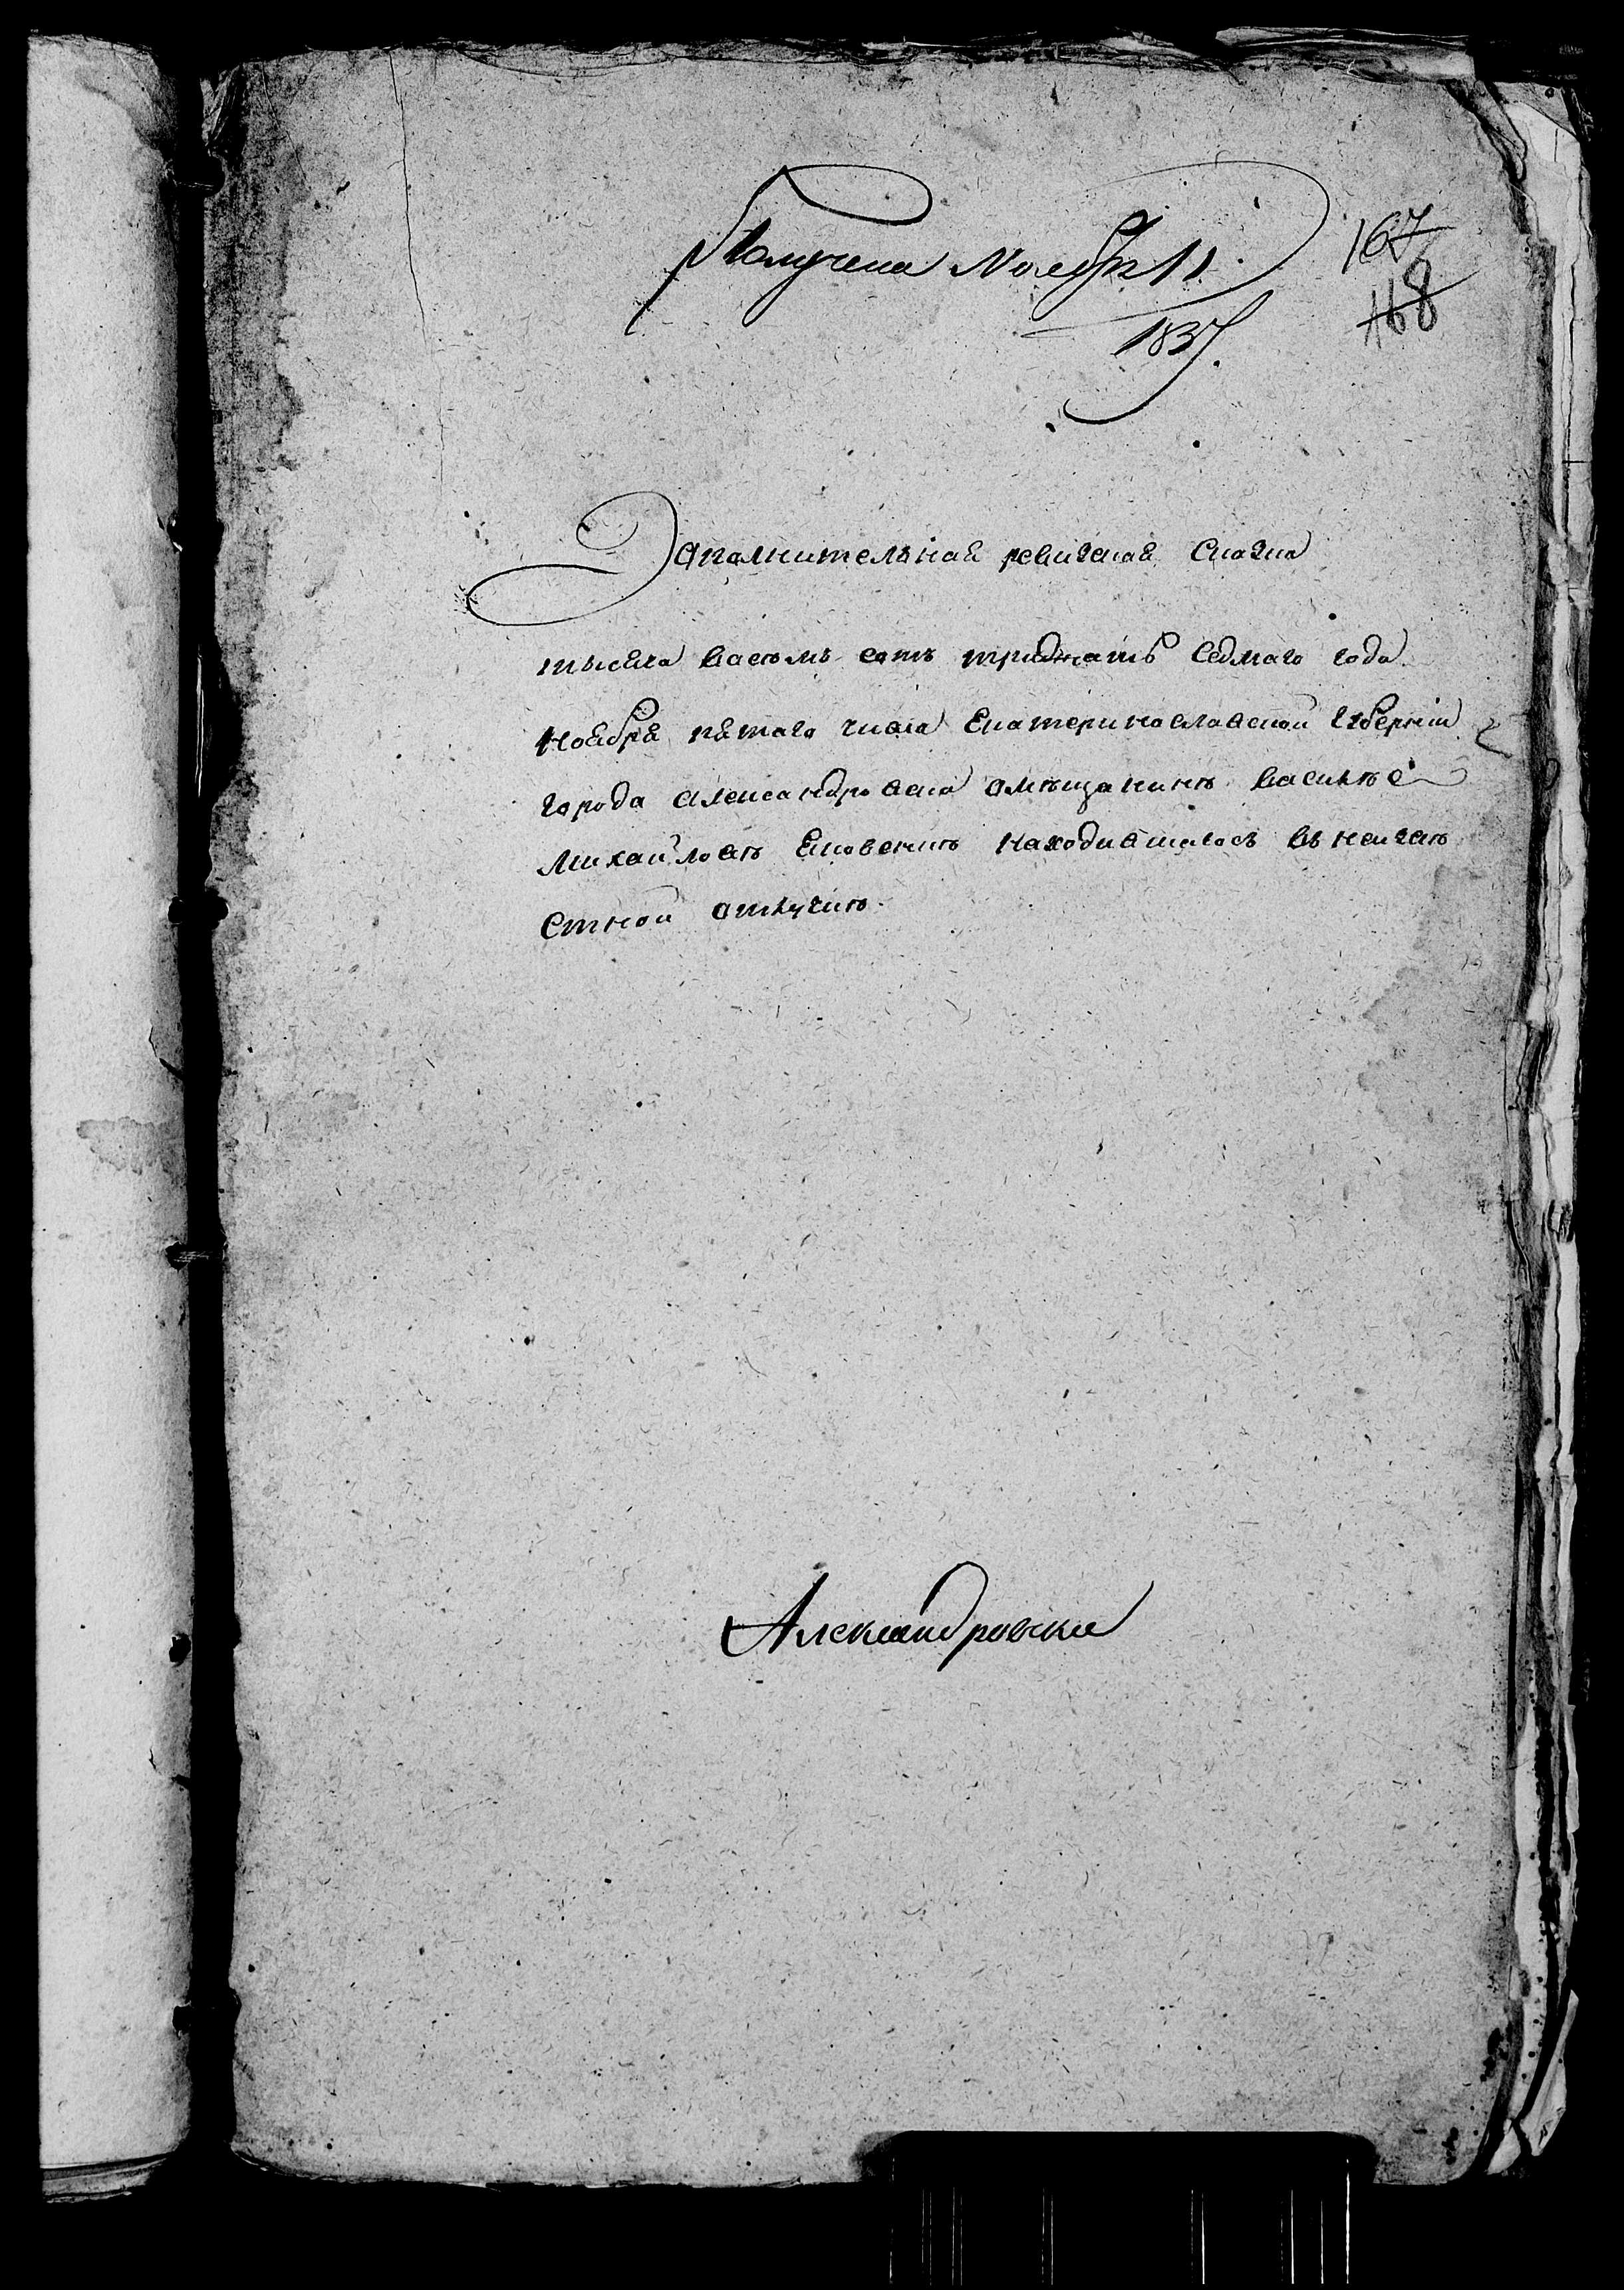 Получена Ноября 11.
167
168
1837.
Дополнительная ревизская сказка
тысяча васемь сотъ тридцать седмаго года
ноября пятаго числа Екатеринославской губернии
города александровска омещанинѣ василье
михайловѣ находившагось в неизвѣ
стной отлучкѣ.
Александровска